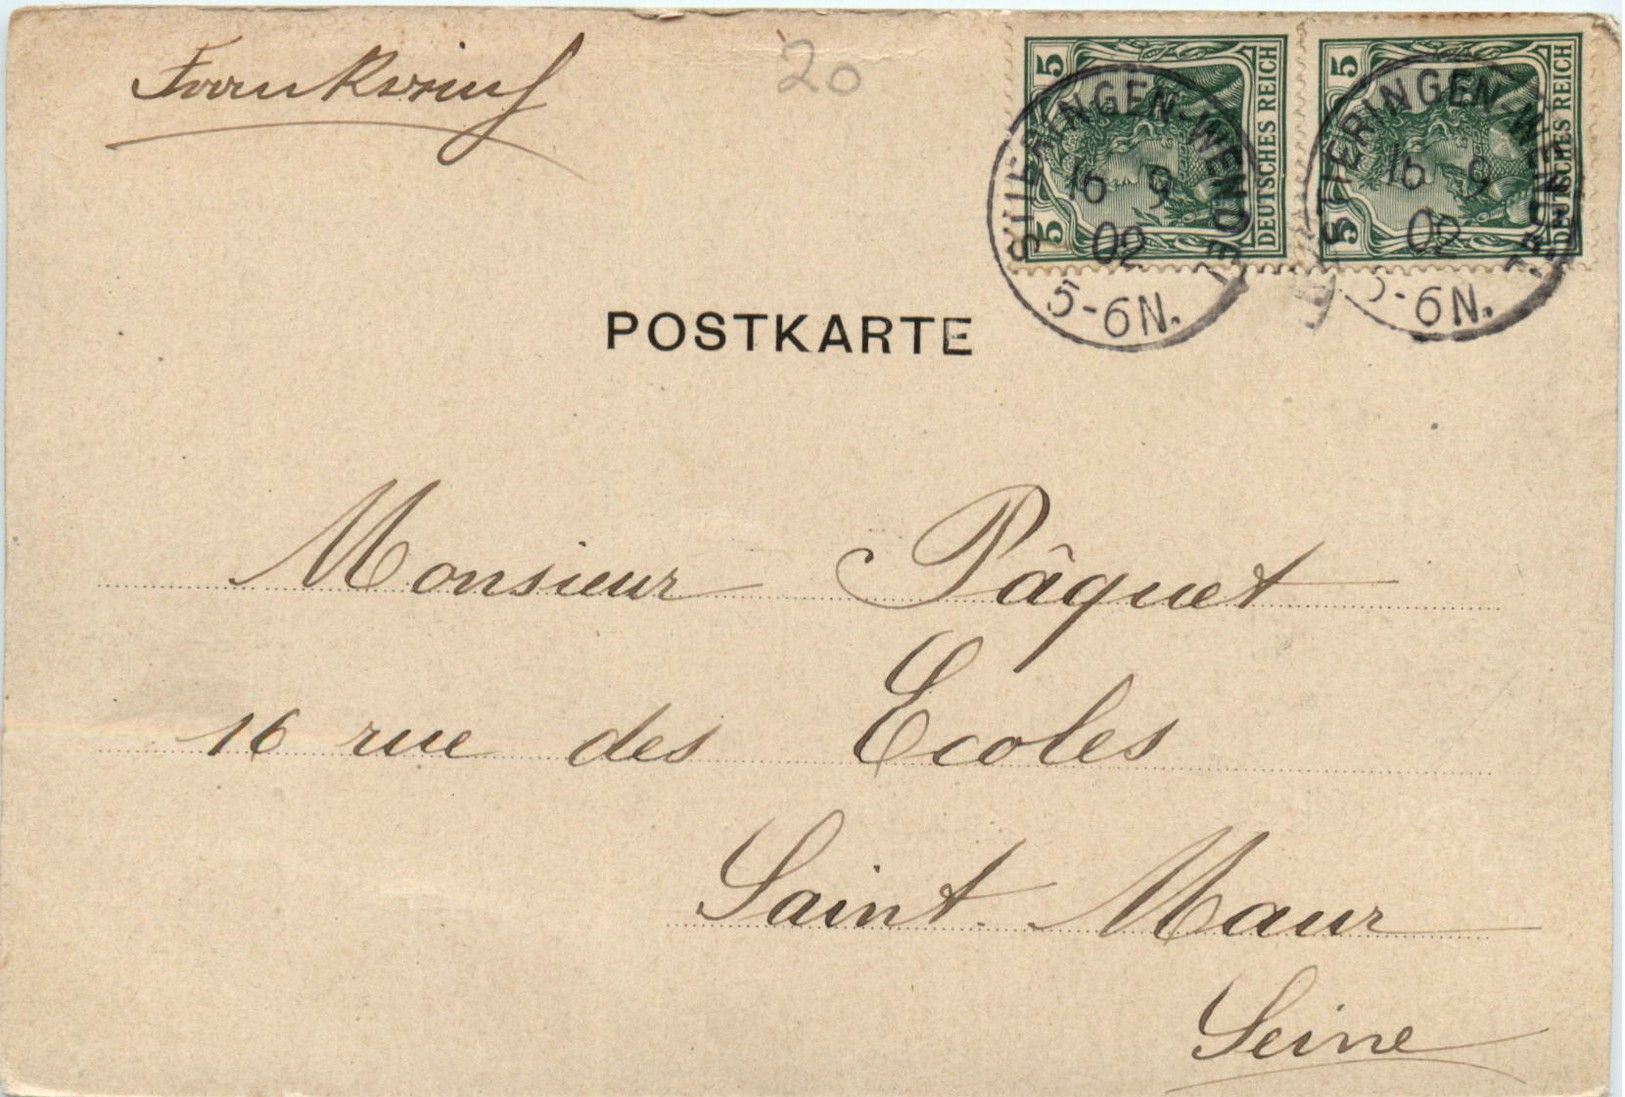 Frankreich
20
5 DEUTSCHES REICH 5
5 DEUTSCHES REICH 5
STIERINGEN-WENDEL
16 9
02
5-6N.
STIERINGEN-WENDEL
16 9
02
5-6N.
POSTKARTE
Monsieur Pâquet
16 rue des Ecoles
Saint-Maur
Seine